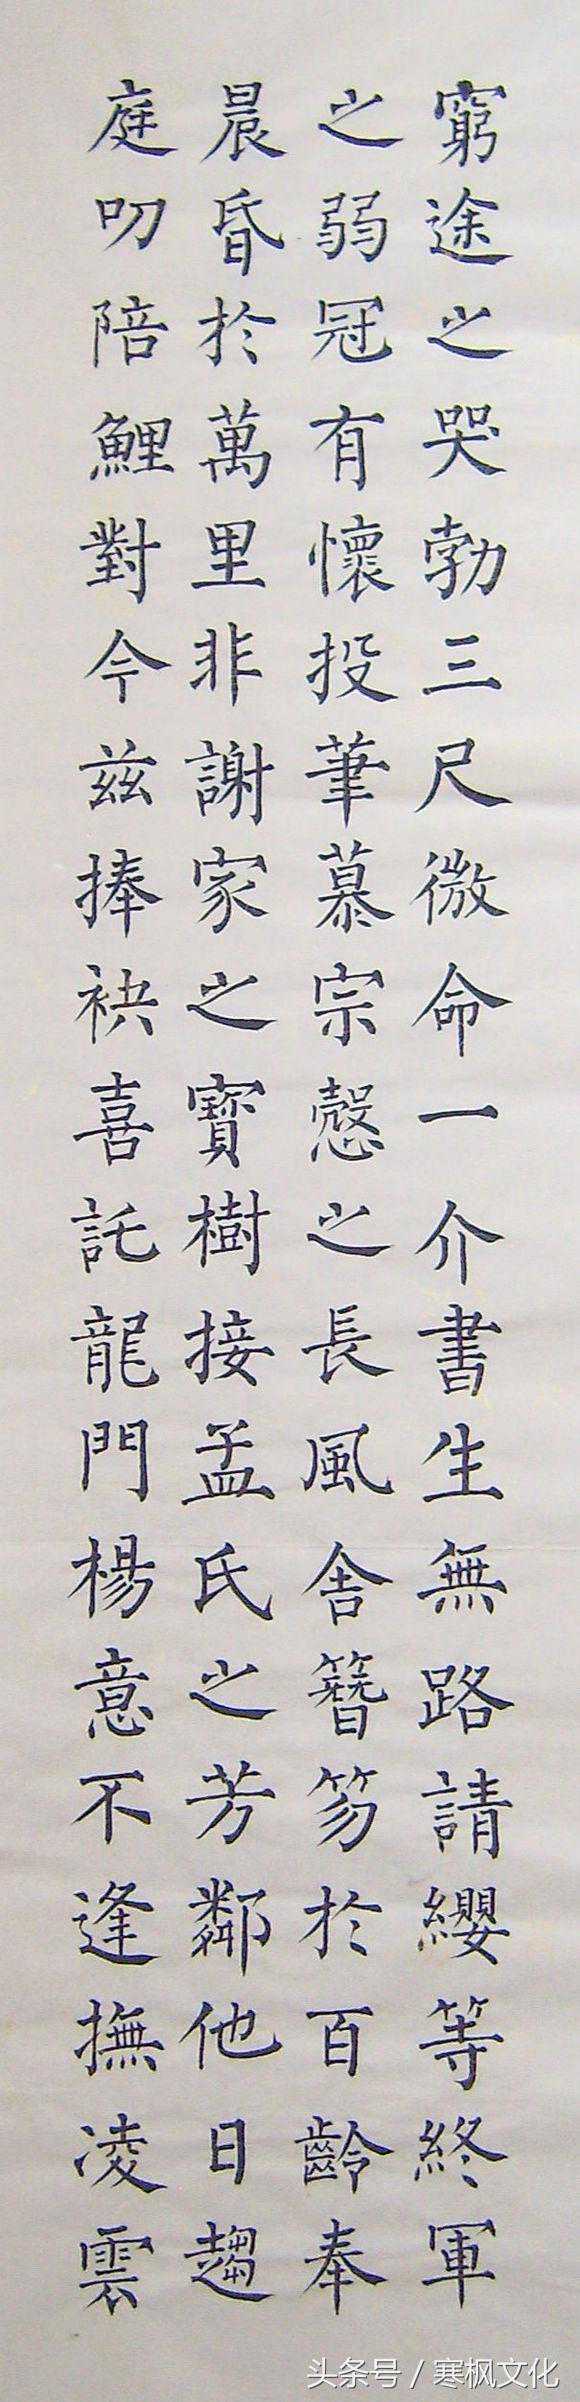 窮途之哭勃三尺微命一介書生無路請纓等終軍
之弱冠有懷投筆慕宗慤之長風舍簪笏於百齡奉
晨昏於萬里非謝家之寶樹接孟氏之芳鄰他日趨
庭叨陪鯉對今兹捧袂喜託龍門楊意不逢撫凌雲
头条号/寒枫文化